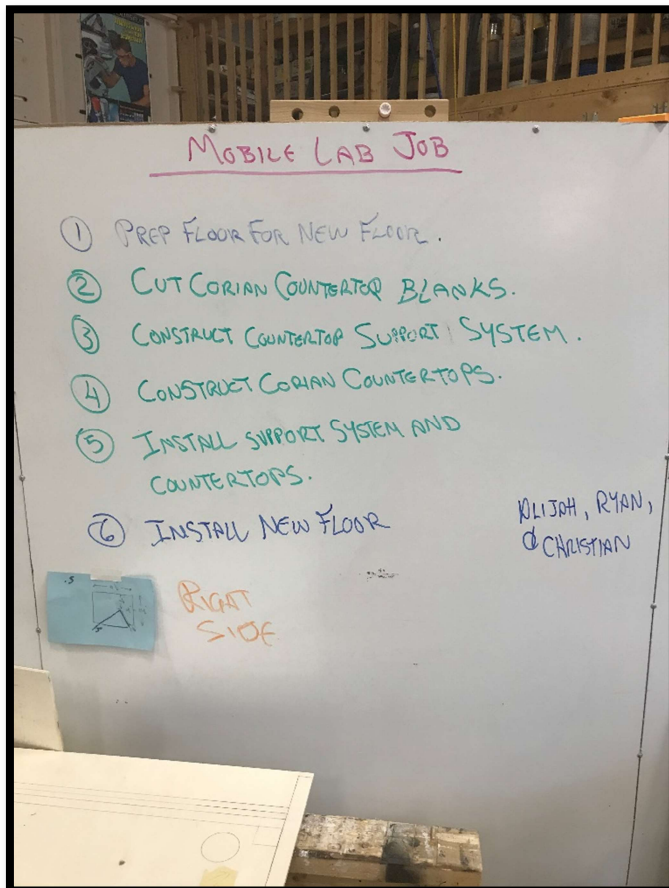 MOBILE LAB JOB
① PREP FLOOR FOR NEW FLOOR.
② CUT CORIAN COUNTERTOP BLANKS.
③ CONSTRUCT COUNTERTOP SUPPORT SYSTEM.
④ CONSTRUCT CORIAN COUNTERTOPS.
⑤ INSTALL SUPPORT SYSTEM AND
COUNTERTOPS.
⑥ INSTALL NEW FLOOR
ALIJAH, RYAN,
& CHRISTIAN
RIGHT
SIDE